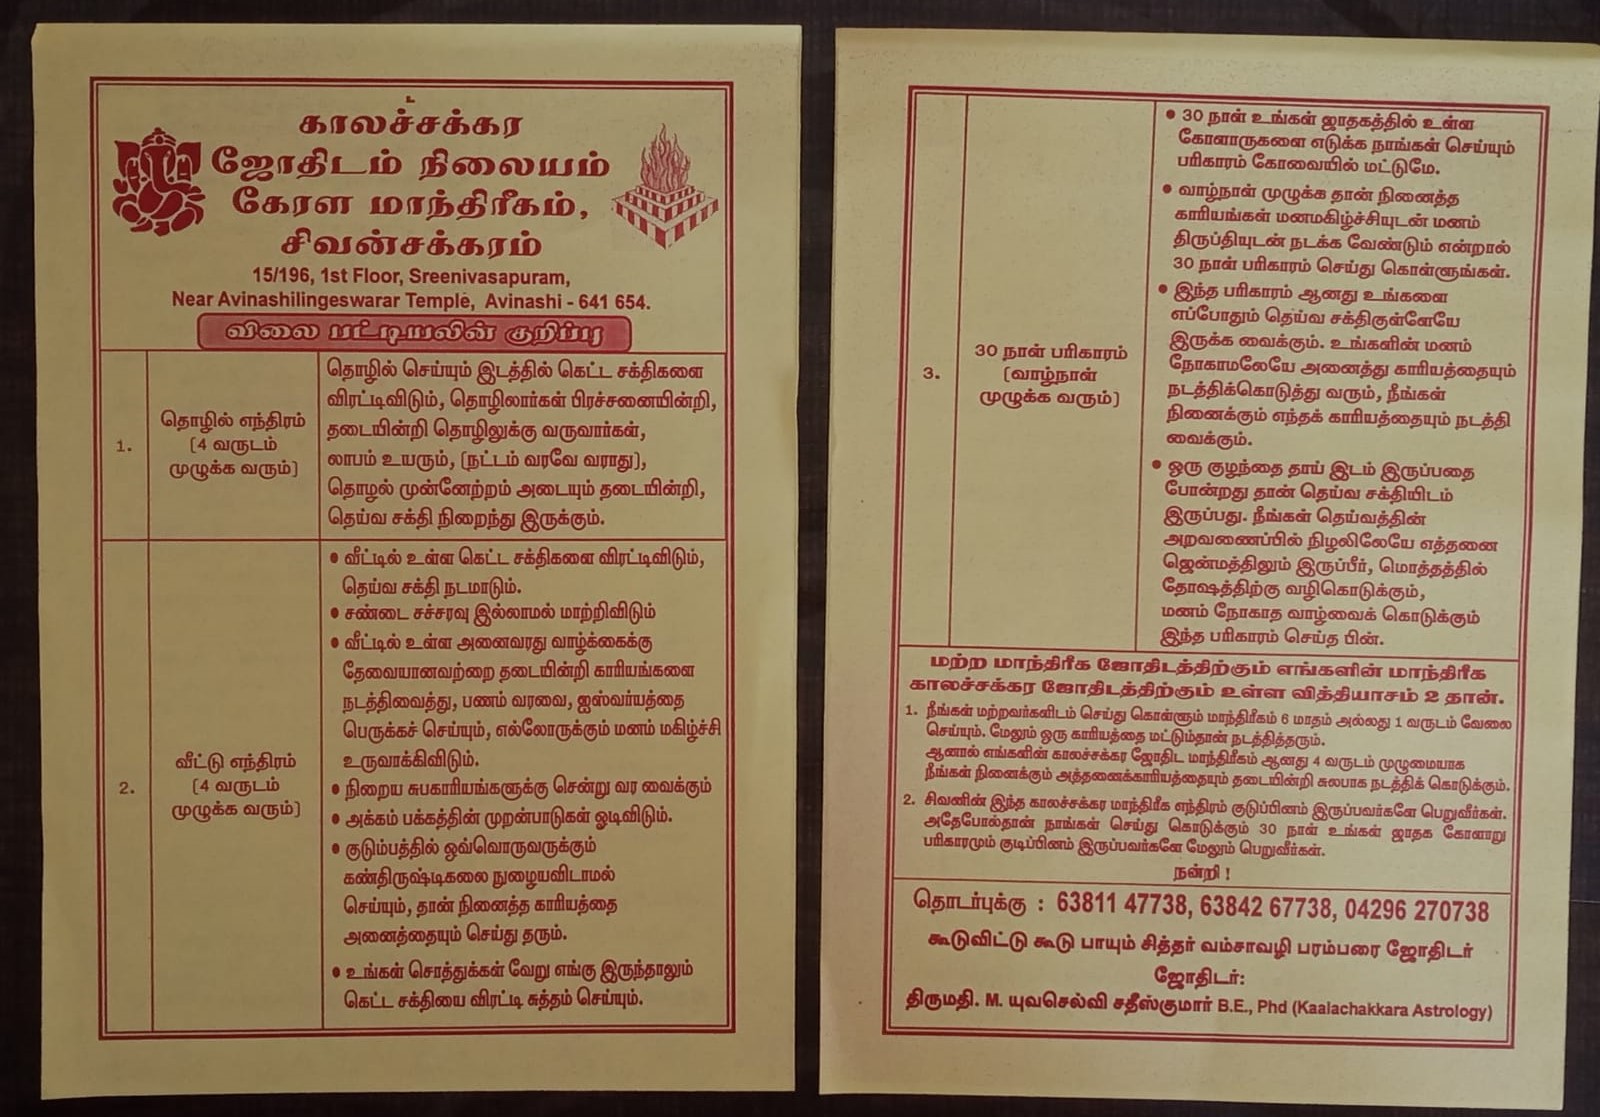 காலச்சக்கர
ஜோதிடம் நிலையம்
கேரள மாந்திரீகம்,
சிவன்சக்கரம்
15/196, 1st Floor, Sreenivasapuram,
Near Avinashilingeswarar Temple, Avinashi - 641 654.
விலை பட்டியலின் குறிப்பு
1.
தொழில் எந்திரம்
(4 வருடம்
முழுக்க வரும்)
தொழில் செய்யும் இடத்தில் கெட்ட சக்திகளை
விரட்டிவிடும், தொழிலார்கள் பிரச்சனையின்றி,
தடையின்றி தொழிலுக்கு வருவார்கள்,
லாபம் உயரும், (நட்டம் வரவே வராது),
தொழல் முன்னேற்றம் அடையும் தடையின்றி,
தெய்வ சக்தி நிறைந்து இருக்கும்.
2.
வீட்டு எந்திரம்
(4 வருடம்
முழுக்க வரும்)
• வீட்டில் உள்ள கெட்ட சக்திகளை விரட்டிவிடும்,
தெய்வ சக்தி நடமாடும்.
• சண்டை சச்சரவு இல்லாமல் மாற்றிவிடும்
• வீட்டில் உள்ள அனைவரது வாழ்க்கைக்கு
தேவையானவற்றை தடையின்றி காரியங்களை
நடத்திவைத்து, பணம் வரவை, ஐஸ்வர்யத்தை
பெருக்கச் செய்யும், எல்லோருக்கும் மனம் மகிழ்ச்சி
உருவாக்கிவிடும்.
• நிறைய சுபகாரியங்களுக்கு சென்று வர வைக்கும்
• அக்கம் பக்கத்தின் முறன்பாடுகள் ஓடிவிடும்.
• குடும்பத்தில் ஒவ்வொருவருக்கும்
கண்திருஷ்டிகலை நுழையவிடாமல்
செய்யும், தான் நினைத்த காரியத்தை
அனைத்தையும் செய்து தரும்.
• உங்கள் சொத்துக்கள் வேறு எங்கு இருந்தாலும்
கெட்ட சக்தியை விரட்டி சுத்தம் செய்யும்.
3.
30 நாள் பரிகாரம்
(வாழ்நாள்
முழுக்க வரும்)
• 30 நாள் உங்கள் ஜாதகத்தில் உள்ள
கோளாருகளை எடுக்க நாங்கள் செய்யும்
பரிகாரம் கோவையில் மட்டுமே.
• வாழ்நாள் முழுக்க தான் நினைத்த
காரியங்கள் மனமகிழ்ச்சியுடன் மனம்
திருப்தியுடன் நடக்க வேண்டும் என்றால்
30 நாள் பரிகாரம் செய்து கொள்ளுங்கள்.
• இந்த பரிகாரம் ஆனது உங்களை
எப்போதும் தெய்வ சக்திகுள்ளேயே
இருக்க வைக்கும். உங்களின் மனம்
நோகாமலேயே அனைத்து காரியத்தையும்
நடத்திக்கொடுத்து வரும், நீங்கள்
நினைக்கும் எந்தக் காரியத்தையும் நடத்தி
வைக்கும்.
• ஒரு குழந்தை தாய் இடம் இருப்பதை
போன்றது தான் தெய்வ சக்தியிடம்
இருப்பது. நீங்கள் தெய்வத்தின்
அறவணைப்பில் நிழலிலேயே எத்தனை
ஜென்மத்திலும் இருப்பீர், மொத்தத்தில்
தோஷத்திற்கு வழிகொடுக்கும்,
மனம் நோகாத வாழ்வைக் கொடுக்கும்
இந்த பரிகாரம் செய்த பின்.
மற்ற மாந்திரீக ஜோதிடத்திற்கும் எங்களின் மாந்திரீக
காலச்சக்கர ஜோதிடத்திற்கும் உள்ள வித்தியாசம் 2 தான்.
1. நீங்கள் மற்றவர்களிடம் செய்து கொள்ளும் மாந்திரீகம் 6 மாதம் அல்லது 1 வருடம் வேலை
செய்யும். மேலும் ஒரு காரியத்தை மட்டும்தான் நடத்தித்தரும்.
ஆனால் எங்களின் காலச்சக்கர ஜோதிட மாந்திரீகம் ஆனது 4 வருடம் முழுமையாக
நீங்கள் நினைக்கும் அத்தனைக்காரியத்தையும் தடையின்றி சுலபாக நடத்திக் கொடுக்கும்.
2. சிவனின் இந்த காலச்சக்கர மாந்திரீக எந்திரம் குடுப்பினம் இருப்பவர்களே பெறுவீர்கள்.
அதேபோல்தான் நாங்கள் செய்து கொடுக்கும் 30 நாள் உங்கள் ஜாதக கோளாறு
பரிகாரமும் குடிப்பினம் இருப்பவர்களே மேலும் பெறுவீர்கள்.
நன்றி !
தொடர்புக்கு : 63811 47738, 63842 67738, 04296 270738
கூடுவிட்டு கூடு பாயும் சித்தர் வம்சாவழி பரம்பரை ஜோதிடர்
ஜோதிடர்:
திருமதி. M. யுவசெல்வி சதீஸ்குமார் B.E., Phd (Kaalachakkara Astrology)